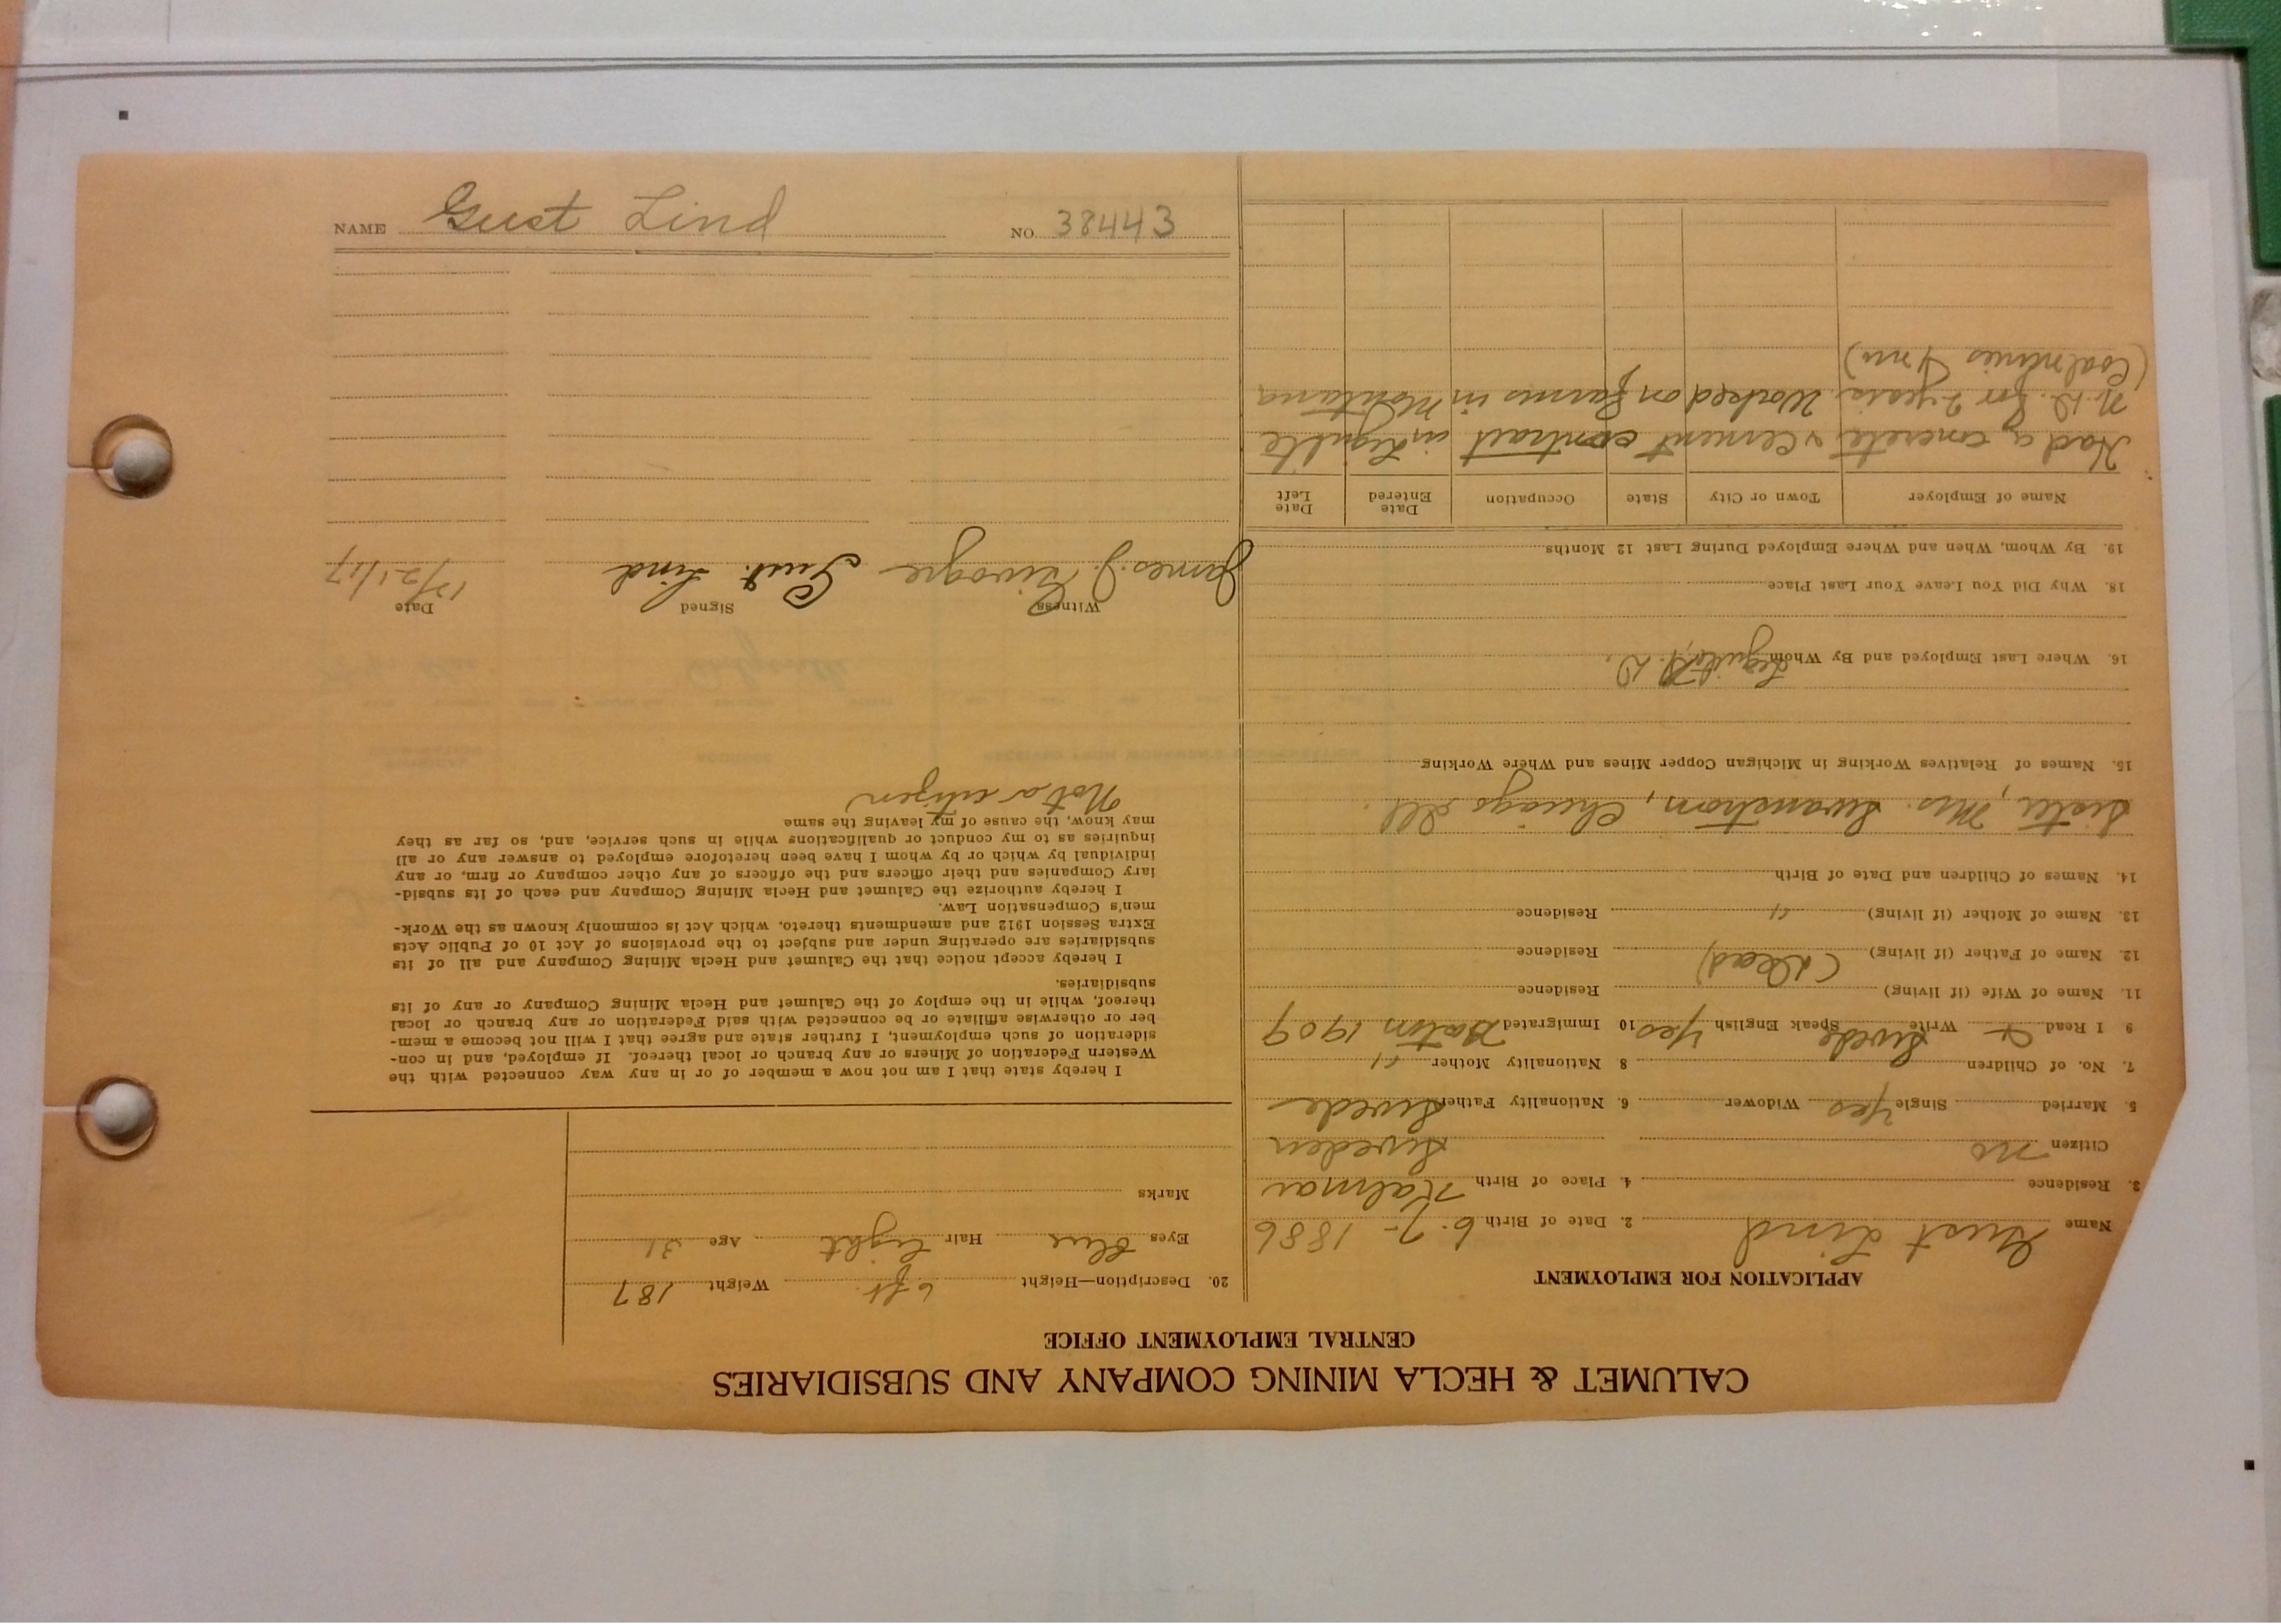 CALUMET & HECLA MINING COMPANY AND SUBSIDIARIES
CENTRAL EMPLOYMENT OFFICE
APPLICATION FOR EMPLOYMENT
Name Gust Lind 2. Date of Birth 6-7-1886
3. Residence 4. Place of Birth Kalmar
Citizen no Sweden
5. Married Single Yes Widower 6. Nationality Father Swede
7. No. of Children 8 Nationality Mother "
9 I Read & Write Swede Speak English Yes 10 Immigrated 1909
11. Name of Wife (if living) Residence
12. Name of Father (if living) (Dead) Residence
13. Name of Mother (if living) " Residence
14. Names of Children and Date of Birth
Sister, Mrs. Swanstrom, Chicago Ill.
15. Names of Relatives Working in Michigan Copper Mines and Where Working
16. Where Last Employed and By Whom N. D.
18. Why Did You Leave Your Last Place
19. By Whom, When and Where Employed During Last 12 Months
Name of Employer Town or City State Occupation Date Entered Date Left
Had a concrete & cement contract in
N. D. for 2 years. Worked on farms in Montana
(Coal mines
20. Description—Height 6 ft. Weight 187
Eyes Blue Hair Light Age 31
Marks
I hereby state that I am not now a member of or in any way connected with the
Western Federation of Miners or any branch or local thereof. If employed, and in con-
sideration of such employment, I further state and agree that I will not become a mem-
ber or otherwise affiliate or be connected with said Federation or any branch or local
thereof, while in the employ of the Calumet and Hecla Mining Company or any of its
subsidiaries.
I hereby accept notice that the Calumet and Hecla Mining Company and all of its
subsidiaries are operating under and subject to the provisions of Act 10 of Public Acts
Extra Session 1912 and amendments thereto, which Act is commonly known as the Work-
men's Compensation Law.
I hereby authorize the Calumet and Hecla Mining Company and each of its subsid-
iary Companies and their officers and the officers of any other company or firm, or any
individual by which or by whom I have been heretofore employed to answer any or all
inquiries as to my conduct or qualifications while in such service, and, so far as they
may know, the cause of my leaving the same
Not a citizen
Witness Signed Date
James J. Gust. Lind 12/21/17
NAME Gust Lind NO. 38443